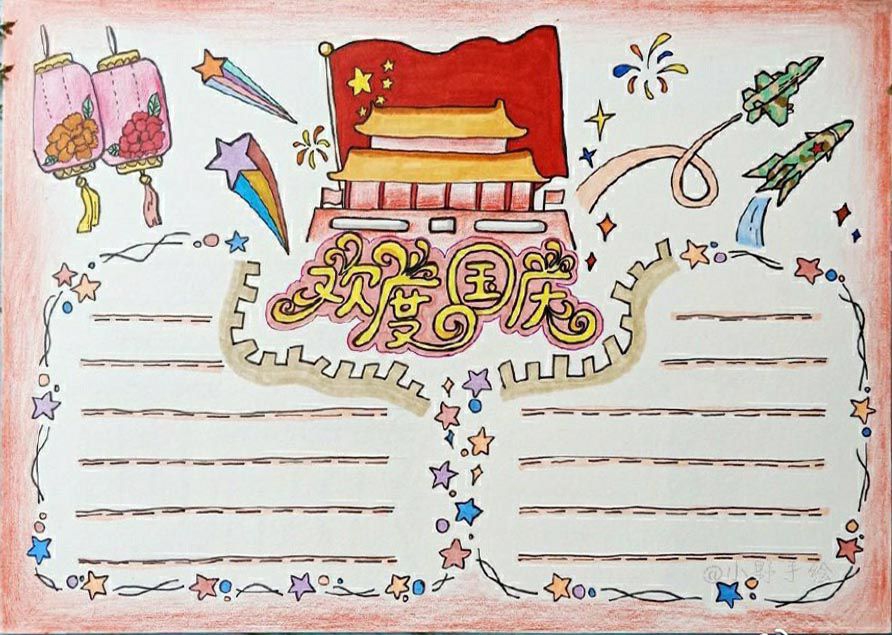 欢度国庆
@小野手绘